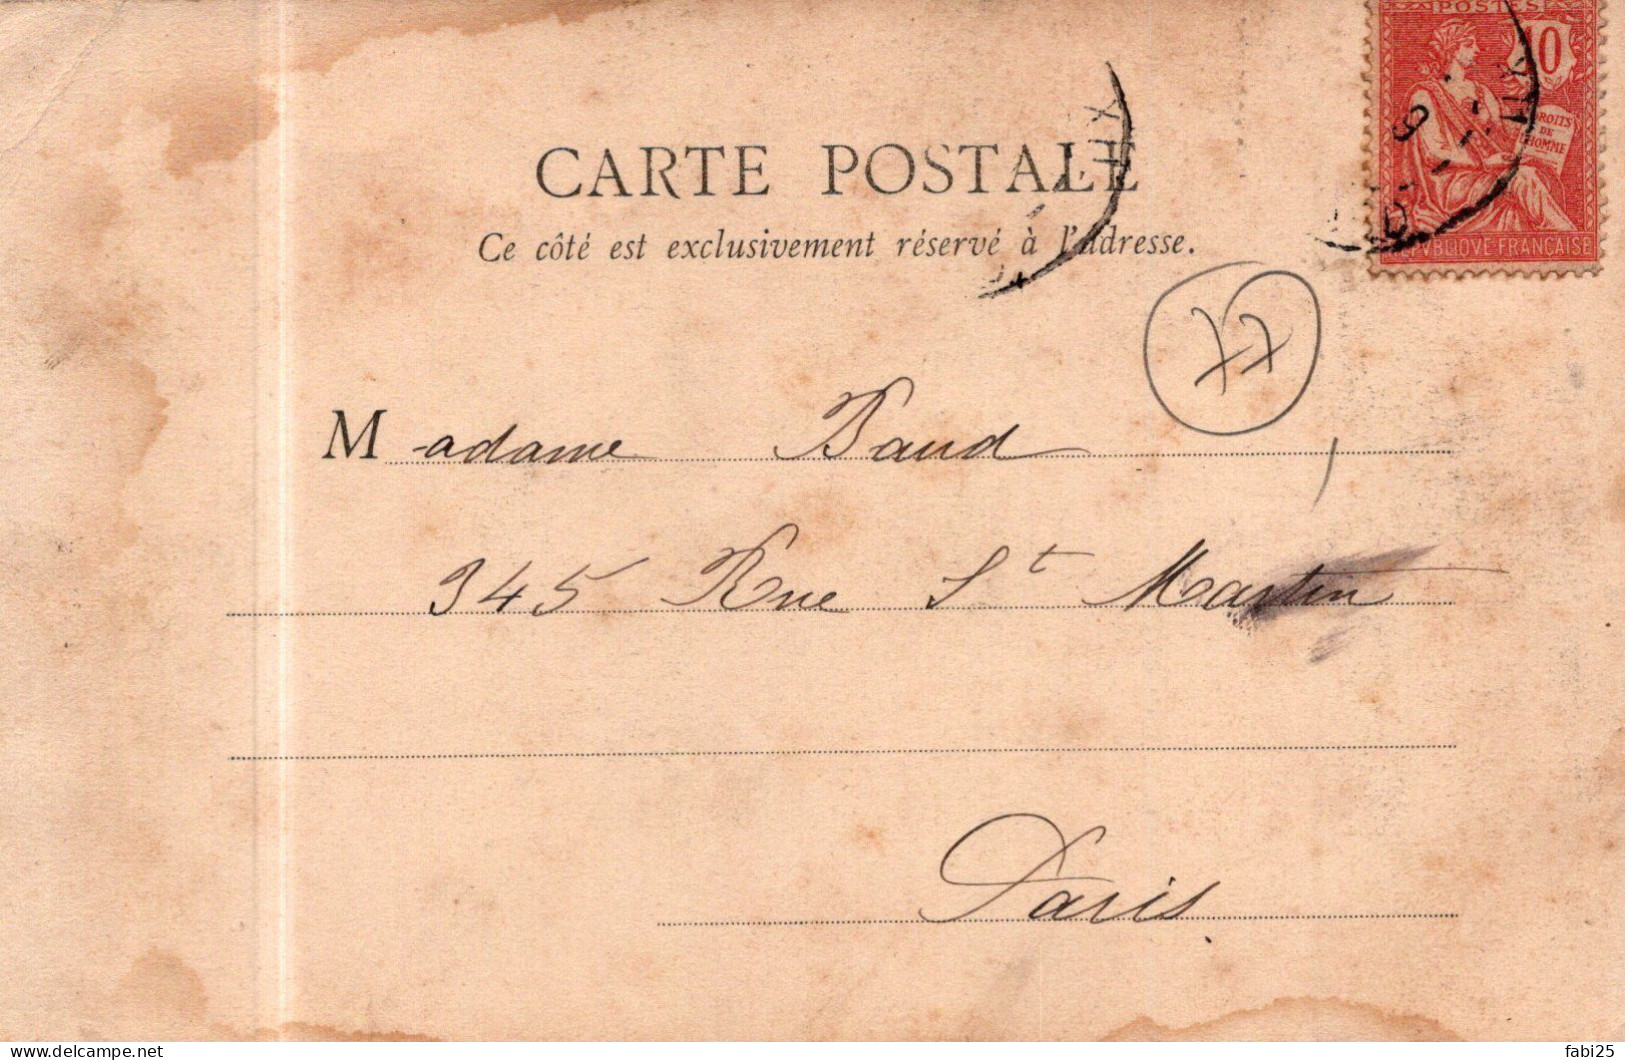 POSTES
10
DROITS
DE
HOMME
CARTE POSTALE
REPVBLIQVE FRANÇAISE
Ce côté est exclusivement réservé à l'adresse.
77
Madame Baud
345 Rue St Martin
Paris
delcampe.net
fabi25